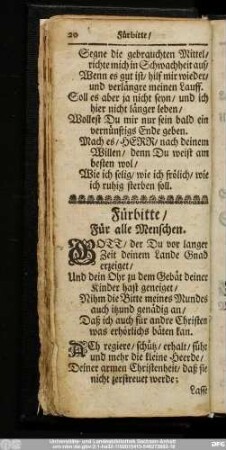 20 Fürbitte/
Segne die gebrauchten Mittel/
richte mich in Schwachheit auf/
Wenn es gut ist/ hilf mir wieder/
und verlängre meinen Lauff.
Soll es aber ja nicht seyn/ und ich
hier nicht länger leben/
Wollest Du mir nur sein bald ein
vernünftigs Ende geben.
Mach es/ HERR/ nach deinem
Willen/ denn Du weist am
besten wol/
Wie ich selig/ wie ich frölich/ wie
ich ruhig sterben soll.
Fürbitte/
Für alle Menschen.
GOTT/ der Du vor langer
Zeit deinem Lande Gnad
erzeiget/
Und dein Ohr zu dem Gebät deiner
Kinder hast geneiget/
Nihm die Bitte meines Mundes
auch itzund genädig an/
Daß ich auch für andre Christen
was erhörlichs bäten kan.
ACh regiere/ schütz/ erhalt/ führ
und mehr die kleine Heerde/
Deiner armen Christenheit/ daß sie
nicht zerstreuet werde:
Lasse
Universitäts- und Landesbibliothek Sachsen-Anhalt